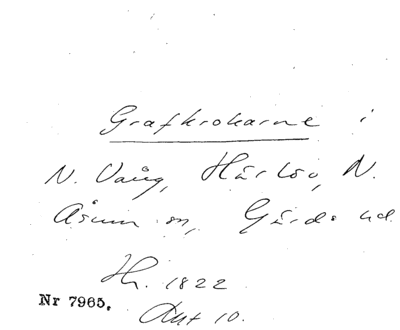 Grafkrokarne i
N. Vång, Härlöv, N.
Åsum sn, Gärds hd.
Hr. 1822
Nr 7965. Avt 10.